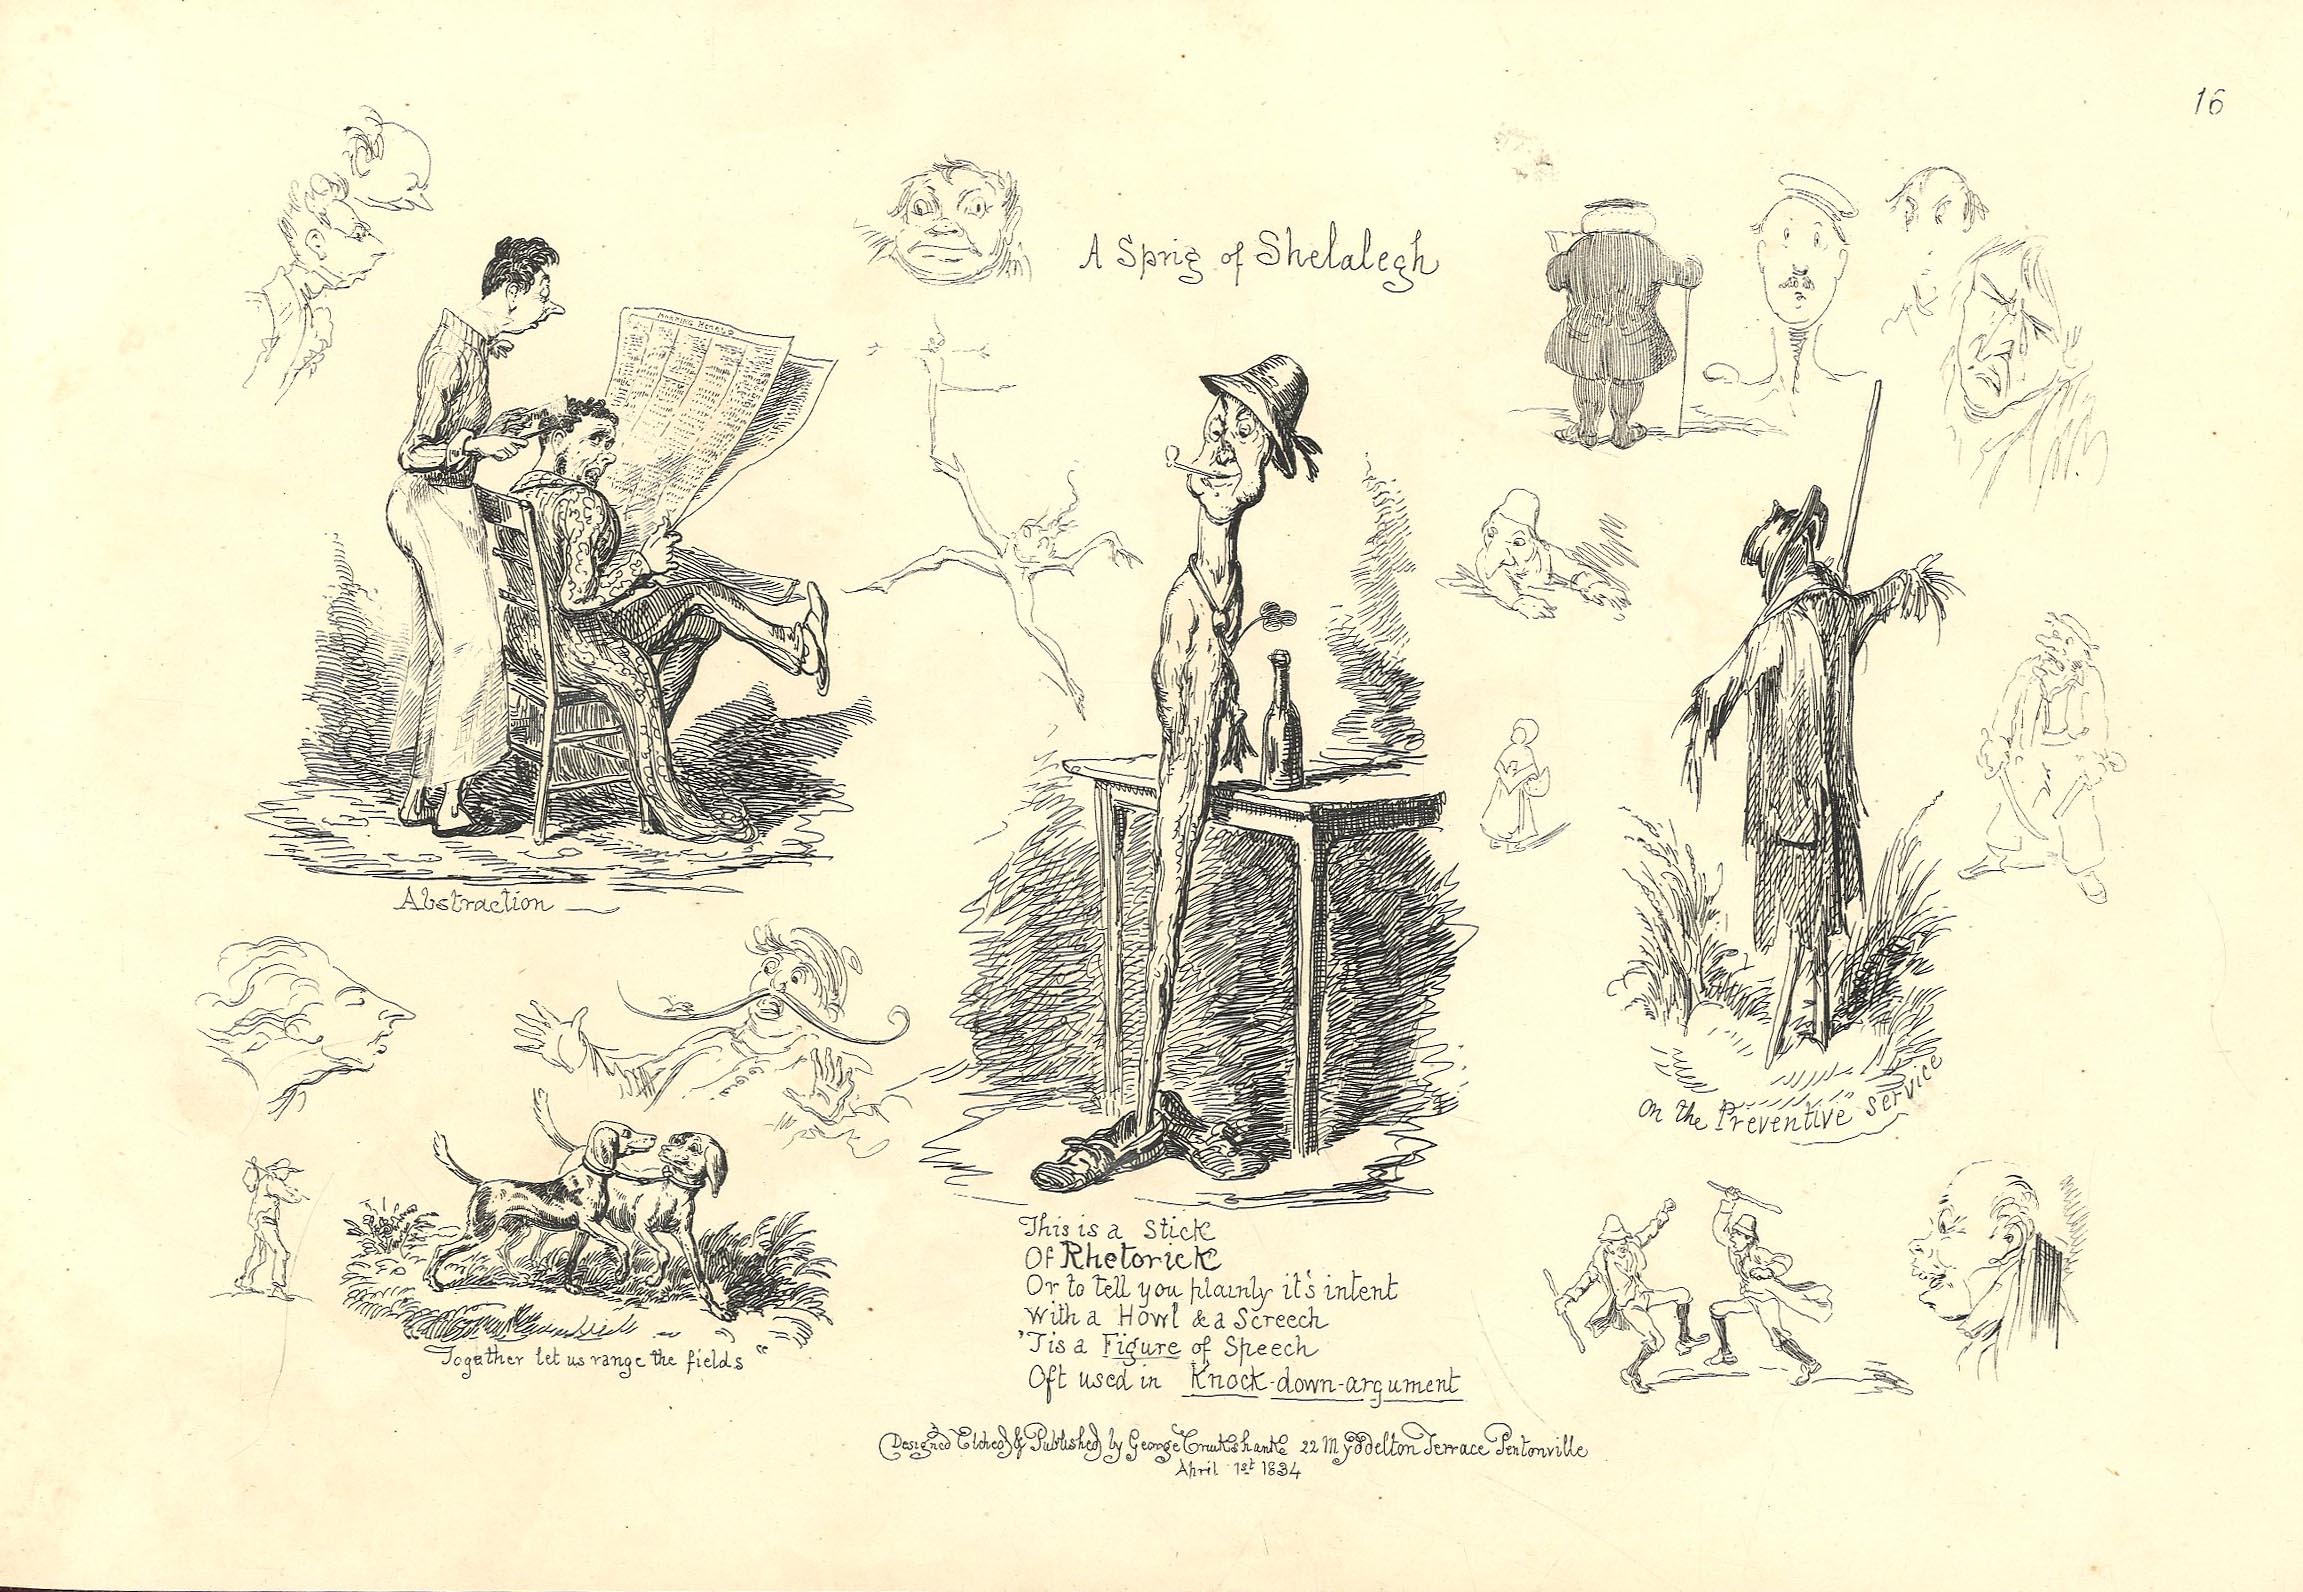 16
A Sprig of Shelalegh
MORNING HERALD
Abstraction
on the Preventive service
"Together let us range the fields"
This is a stick
Of Rhetorick
Or to tell you plainly it's intent
With a Howl & a Screech
'Tis a Figure of Speech
Oft used in Knock-down-argument
Designed Etched & Published by George Cruikshank 22 Myddelton Terrace Pentonville
April 1st 1834